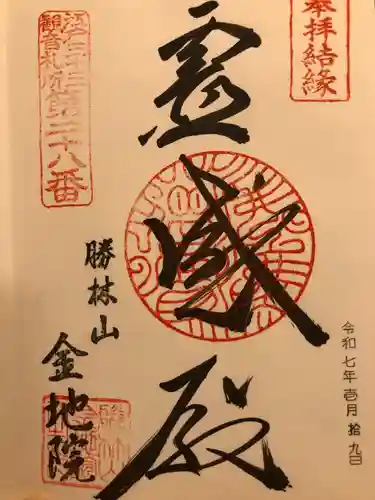 奉拝結縁
霊感殿
江戸三十三
観音札所
第二十八番
勝林山
金地院
令和七年壱月拾九日